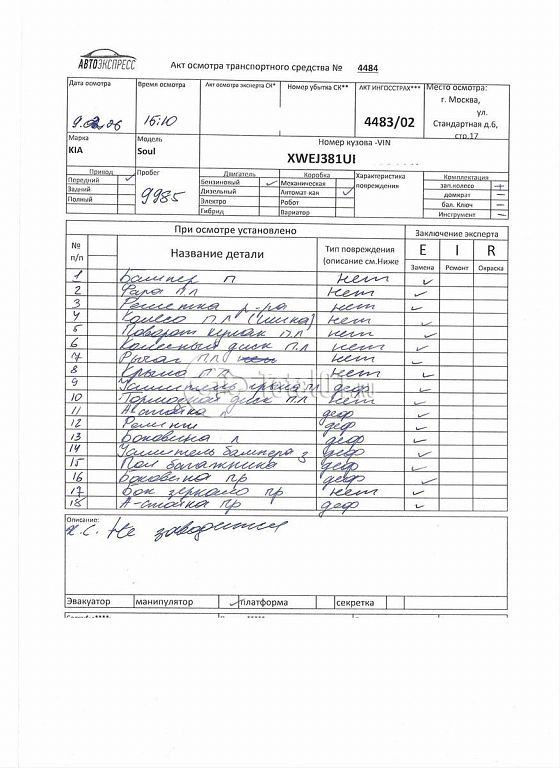 АВТОЭКСПРЕСС
Акт осмотра транспортного средства № 4484
Дата осмотра Время осмотра Акт осмотра эксперта СК* Номер убытка СК** АКТ ИНГОССТРАХ*** Место осмотра:
15:10 4483/02 г. Москва,
ул.
Стандартная д.6,
стр.17
Марка Модель Номер кузова -VIN
KIA Soul XWEJ381UI
Привод Пробег Двигатель Коробка Характеристика повреждения Комплектация
Передний ✓ 9985 Бензиновый ✓ Механическая зап.колесо +
Задний Дизельный Автомат кая ✓ домкрат –
Полный Электро Робот бал. Ключ –
Гибрид Вариатор Инструмент –
При осмотре установлено Заключение эксперта
№ п/п Название детали Тип повреждения (описание см.Ниже E I R
Замена Ремонт Окраска
1 Бампер П нет ✓
2 Фара П Л нет ✓
3 Решетка р-ра нет ✓
4 Колесо П Л (шина) нет ✓
5 Поворот кулак П.Л нет ✓
6 Колесный диск П.Л нет ✓
7 Рычаг П Л нет ✓
8 Крыло П Л нет ✓
9 Усилитель крыла П Л деф ✓
10 Тормозной диск П.Л нет ✓
11 А-стойка Л деф ✓
12 деф ✓
13 Боковина Л деф ✓
14 Усилитель бампера З деф ✓
15 Пол багажника деф ✓
16 Боковина ПР деф ✓
17 Бок зеркало ПР нет ✓
18 А-стойка ПР деф ✓
Описание:
Х.С. Не заводится
Эвакуатор манипулятор ✓ платформа секретка